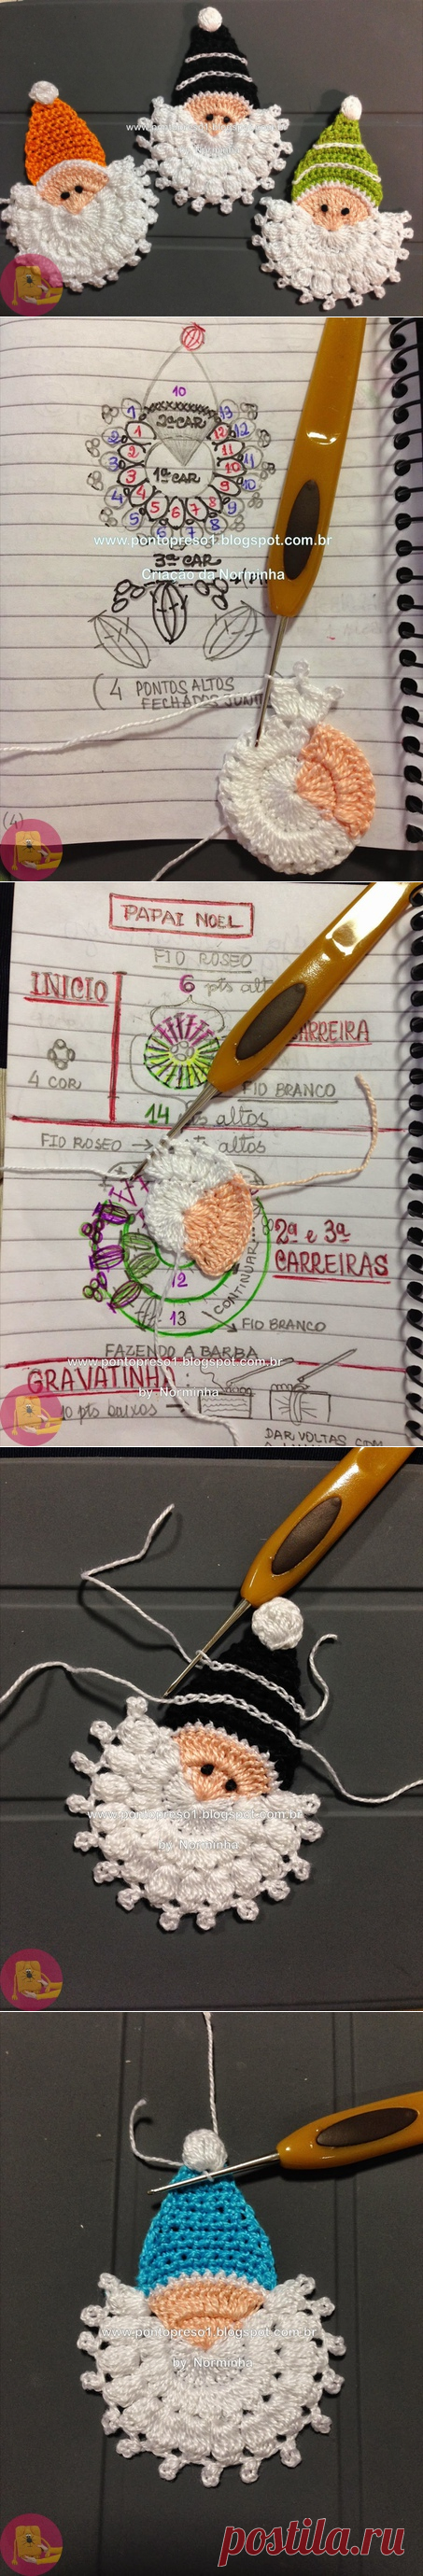 www.pontopreso1.blogspot.com.br
10
2ª CAR
1 13
2 1 12 12
3 2 11 11
3 1ª CAR 10 10
4 4 9 9
5 5 6 7 8 8
6 7
www.pontopreso1.blogspot.com.br
3ª CAR
Criação da Norminha
(4 PONTOS ALTOS
FECHADOS JUNT
(4)
PAPAI NOEL
FIO ROSEO
INICIO
6 pts alt
CARREIRA
4 COR
FIO BRANCO
14 altos
FIO ROSEO → altos
2ª e 3ª
CARREIRAS
12
CONTINUAR...
13
FIO BRANCO
FAZENDO A BARBA
www.pontopreso1.blogspot.com.br
GRAVATINHA:
by Norminha
10 pts baixos
DAR VOLTAS COM
www.pontopreso1.blogspot.com.br
by Norminha
www.pontopreso1.blogspot.com.br
by Norminha
postila.ru